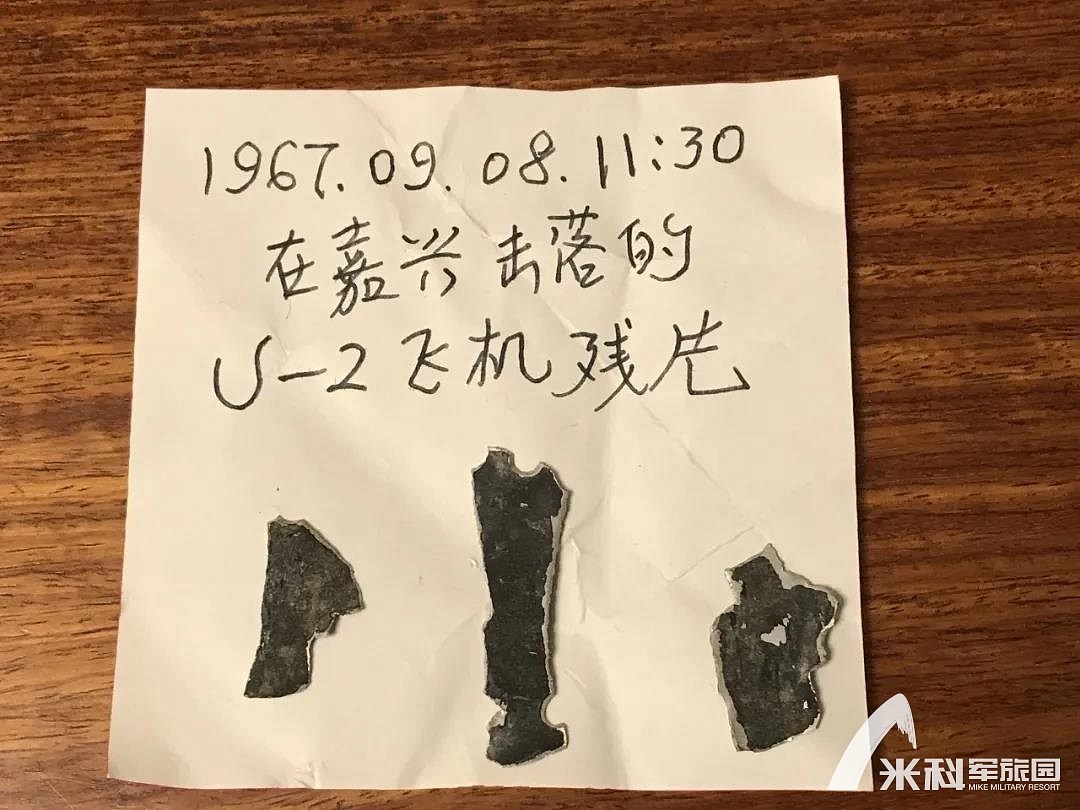 1967.09.08.11:30
在嘉兴击落的
U-2飞机残片
米科军旅园
MIKE MILITARY RESORT